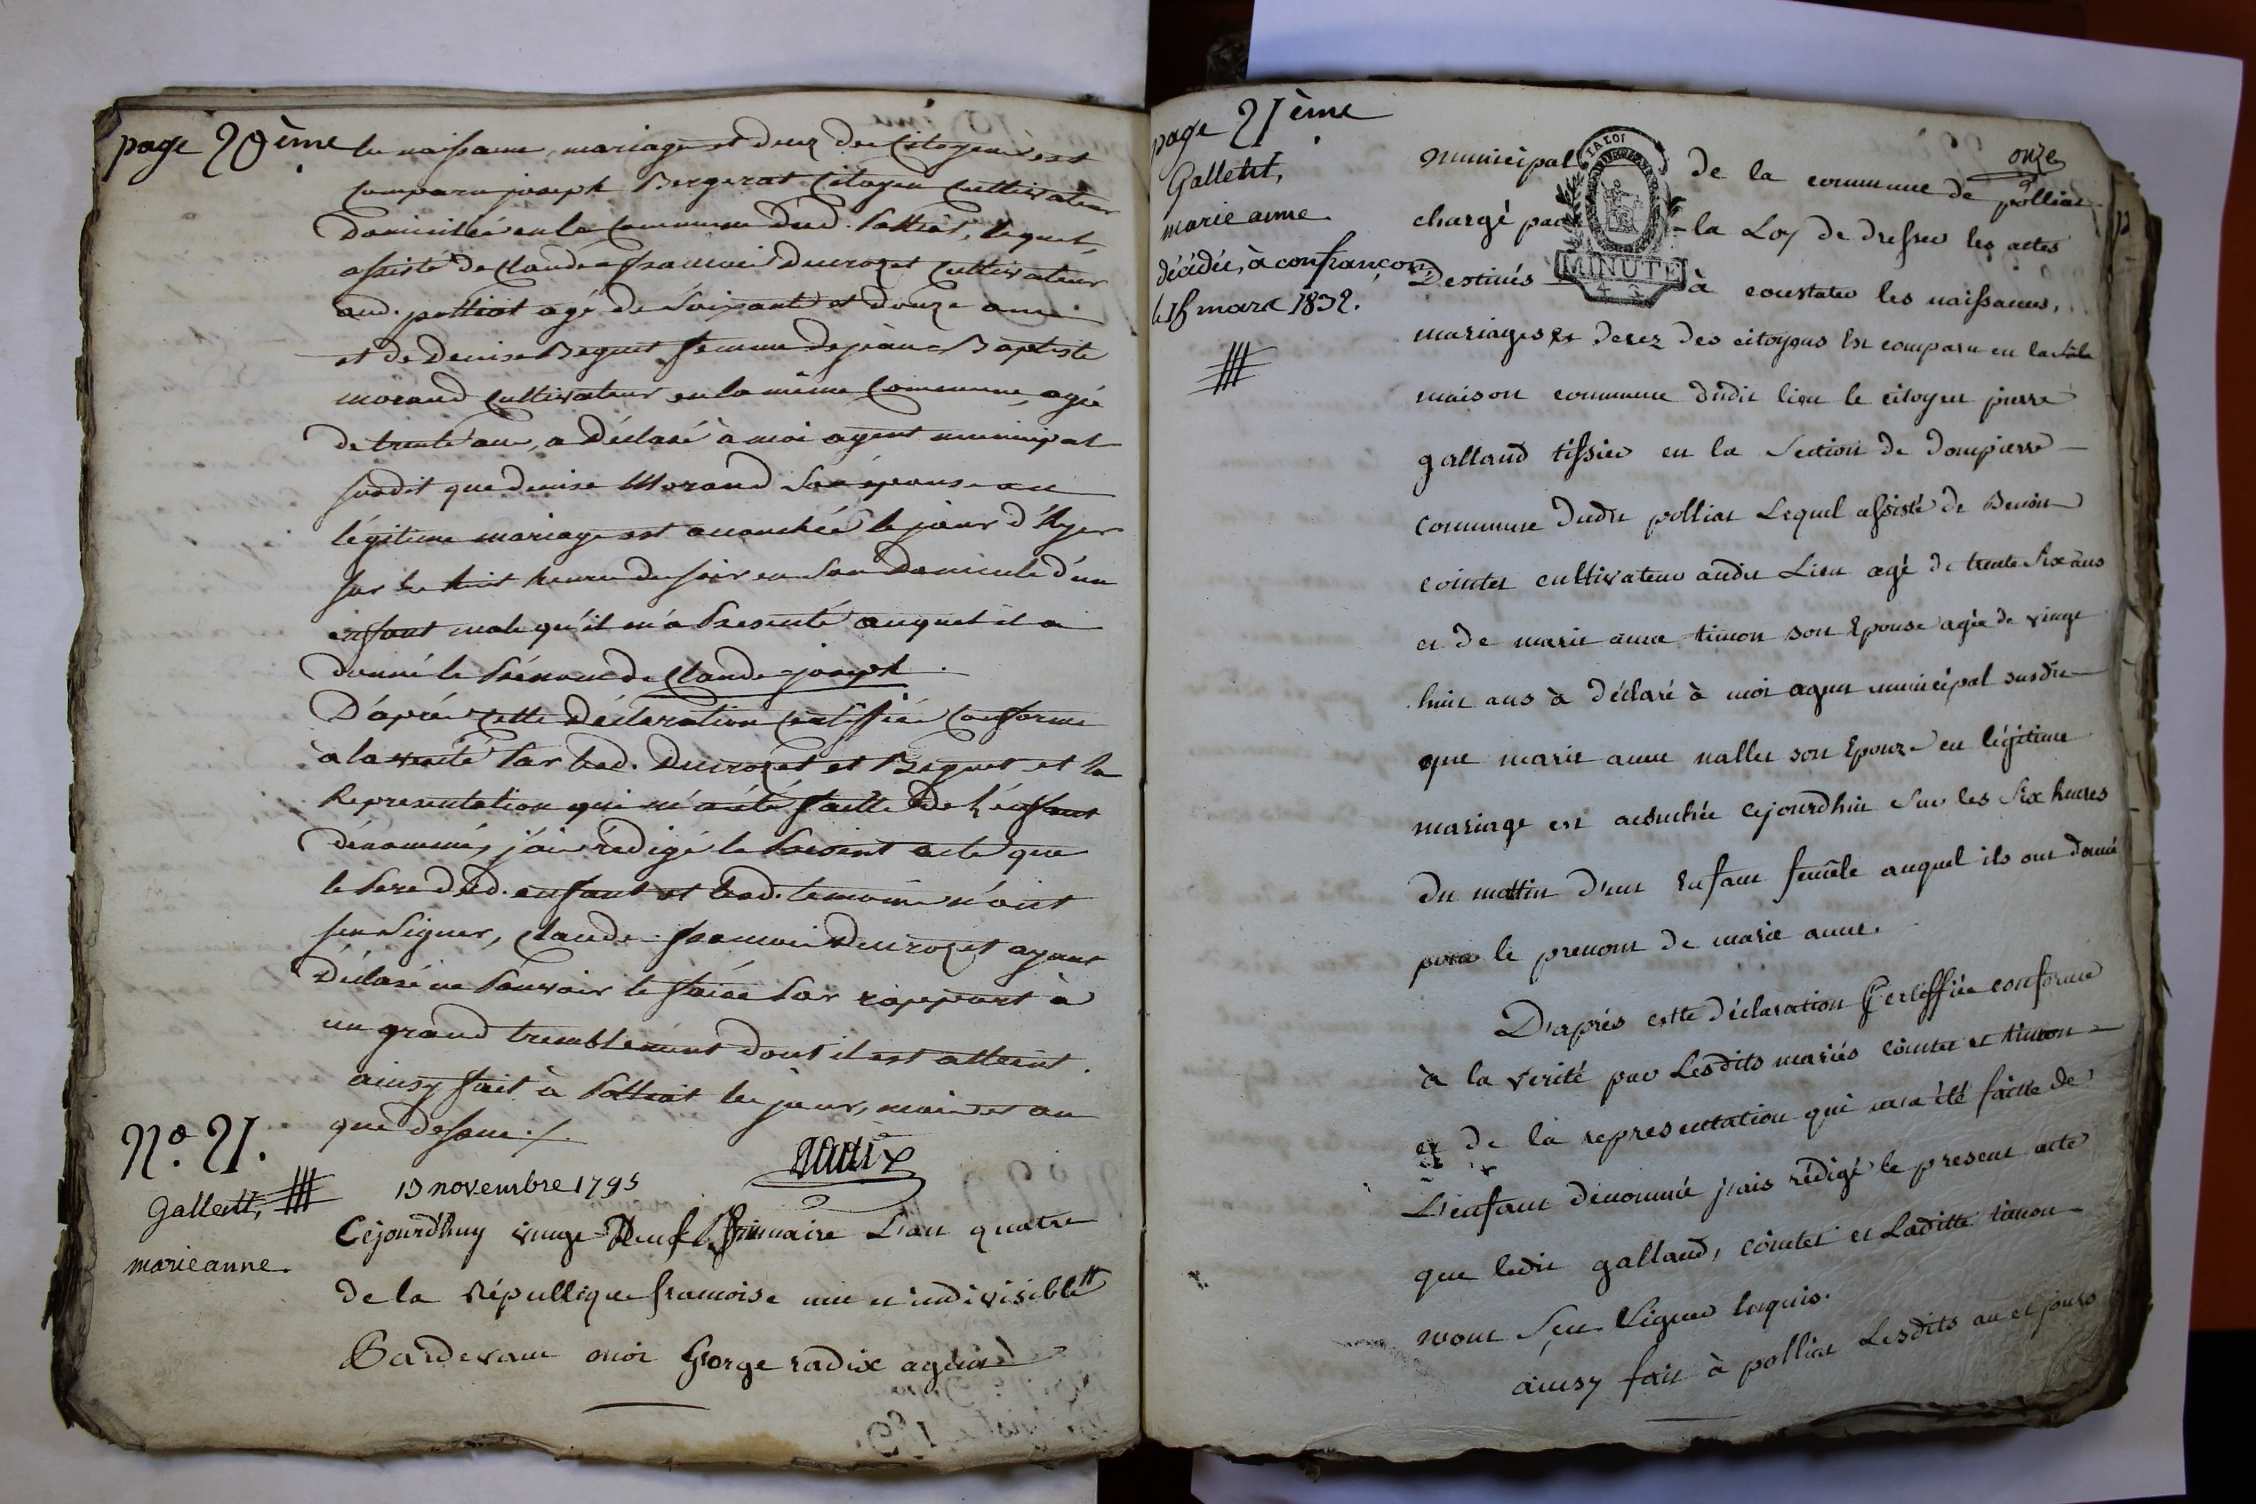 page 20ème
les naissance, mariage et decez des Citoyens est
comparu joseph Bergerat Citoyen Cultivateur
Domicilié en la Commune dud. Polliat, lequel
assisté de Claude françois Ducrozet Cultivateur
aud. polliat agé de Soixante et douze ans
et de Denise Beguet femme de jean Baptiste
morand Cultivateur en la même Commune, agée
de trente ans, a Déclaré à moi agent municipal
susdit que denise Morand Son épouse en
légitime mariage est accouchée le jour d'hyer
sur les huit heures du soir en Son Domicile d'un
enfant male qu'il m'a Presenté auquel il a
donné le Prénom de Claude joseph.
D'après cette Déclaration certiffiée conforme
à la verité Par lesd. Ducrozet et Beguet et la
Représentation qui m'a été faitte de l'enfant
dénommé, j'ai rédigé le Présent acte que
le Pere dud. enfant et lesd. temoins n'ont
seu Signer, Claude françois Ducrozet ayant
Déclaré ne Pouvoir le faire Par rapport à
un grand tremblement dont il est atteint.
ainsy fait à Polliat les jour, mois et an
que dessus ./.
Radix
N.º 21.
Gallett,
marie anne.
19 novembre 1795
Cejourd'huy vingt Neuf Brumaire L'an quatre
de la République francoise une et indivisible
Pardevant moi George radix agent
page 21ème
Gallett,
marie anne
décédée, à confrançon
le 18 mars 1832.
onze
LA LOI
MINUTE
municipal de la commune de polliat
chargé par la Loy de dresser les actes
Destinés à constater les naissances,
mariages et decez des citoyens Est comparu en la Sale
maison commune dudit lieu le citoyen pierre
galland tissier en la Section de dompierre
commune dudit polliat Lequel assisté de Benoit
cointet cultivateur audit Lieu agé de trente Six ans
et de marie anne timon son Epouse agée de vingt
huit ans à déclaré à moi agent municipal susdit
que marie anne nallet son Epouze en légitime
mariage est acouchée cejourdhui Sur les Six heures
du mattin d'un Enfant femêle auquel ils ont donné
pour le prenom de marie anne.
D'après cette déclaration Certiffiée conforme
à la verité par Lesdits mariés cointet et timon
et de la representation qui m'a été faitte de
L'enfant dénommé j'ais rédigé le present acte
que ledit galland, cointet et Laditte timon
n'ont Seu Signer Enquis.
ainsy fait à polliat Lesdits an et jours